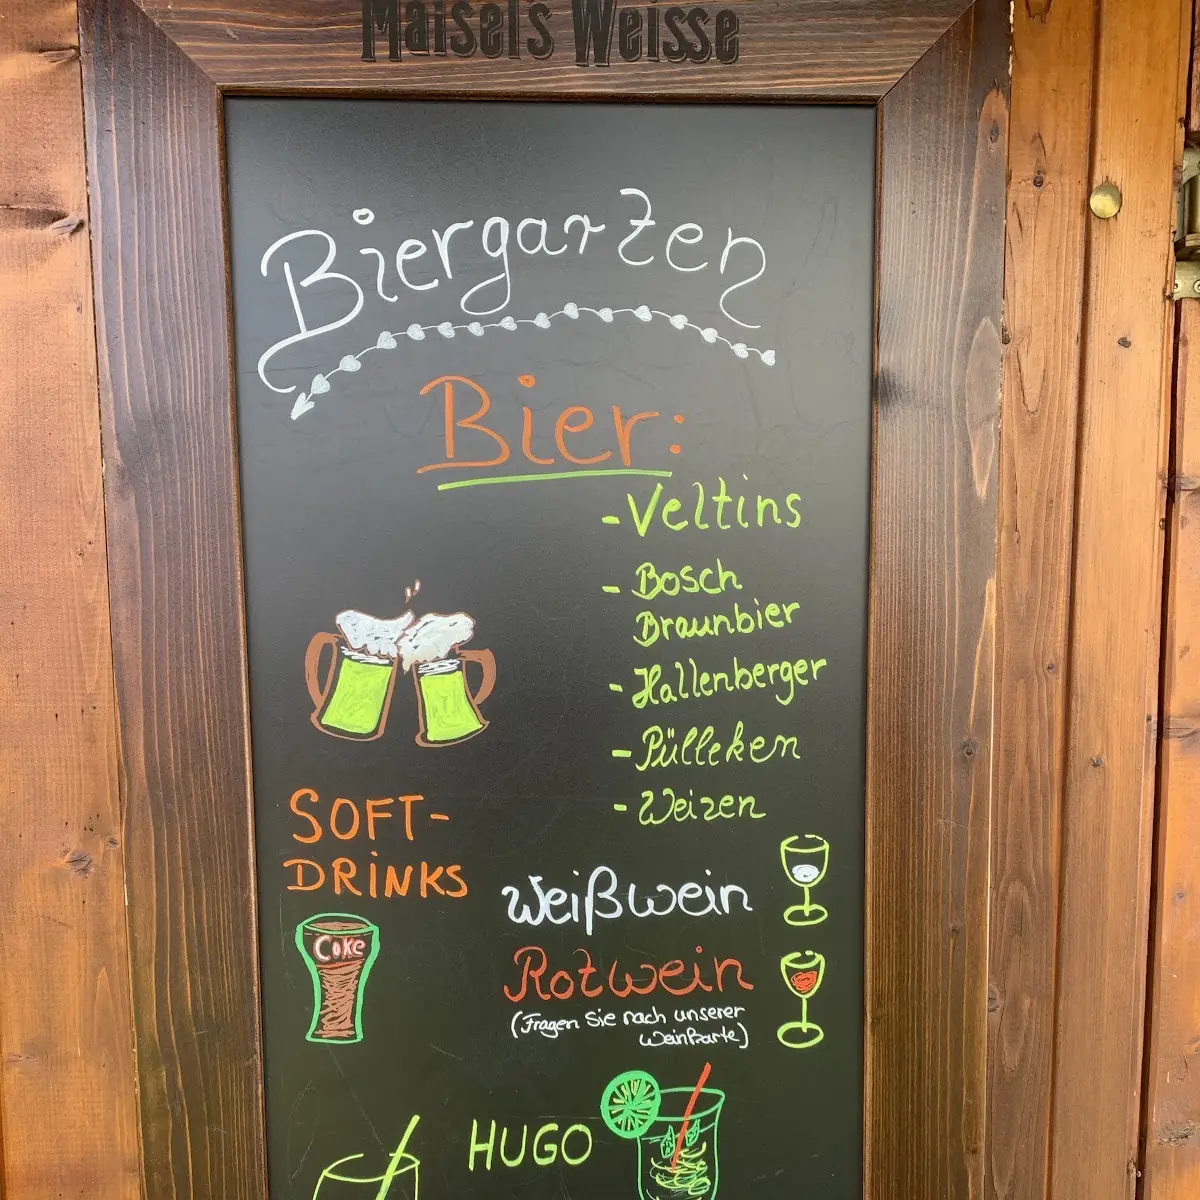 Maisel's Weisse
Biergarten
Bier:
- Veltins
- Bosch
Braunbier
- Hallenberger
- Pülleken
- Weizen
SOFT-
DRINKS
Coke
Weißwein
Rotwein
(Fragen Sie nach unserer
Weinkarte)
HUGO